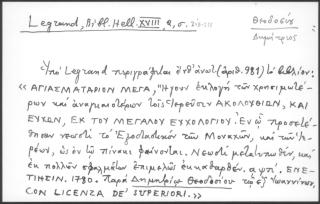 Legrand, Bibl. Hell. XVIII, 2, σ.
Θεοδοσίου
Δημήτριος
Ὑπὸ Legrand περιγράφεται ἐνθ' ἀνωτ (ἀριθ. 981) τὸ βιβλίον:
« ΑΓΙΑΣΜΑΤΑΡΙΟΝ ΜΕΓΑ, Ἤγουν ἐκλογὴ τῶν χρησιμωτέ-
ρων καὶ ἀναγκαιοτέρων τοῖς Ἱερεῦσιν ΑΚΟΛΟΥΘΙΩΝ, ΚΑΙ
ΕΥΧΩΝ, ΕΚ ΤΟΥ ΜΕΓΑΛΟΥ ΕΥΧΟΛΟΓΙΟΥ. Ἐν ᾧ προσετέ-
θησαν νεωστὶ τὸ Ἐξοδιαστικὸν τῶν Μοναχῶν, καὶ τῶν Ἱε-
ρέων, ὡς ἐν τῷ πίνακι φαίνονται. Νεωστὶ μετατυπωθὲν, καὶ
ἐκ πολλῶν σφαλμάτων ἐπιμελῶς ἐκκαθαρθέν. αψπ'. ΕΝΕ-
ΤΙΗΣΙΝ. 1780. Παρὰ Δημητρίῳ Θεοδοσίου τῷ ἐξ Ἰωαννίνων.
CON LICENZA DE' SUPERIORI. »